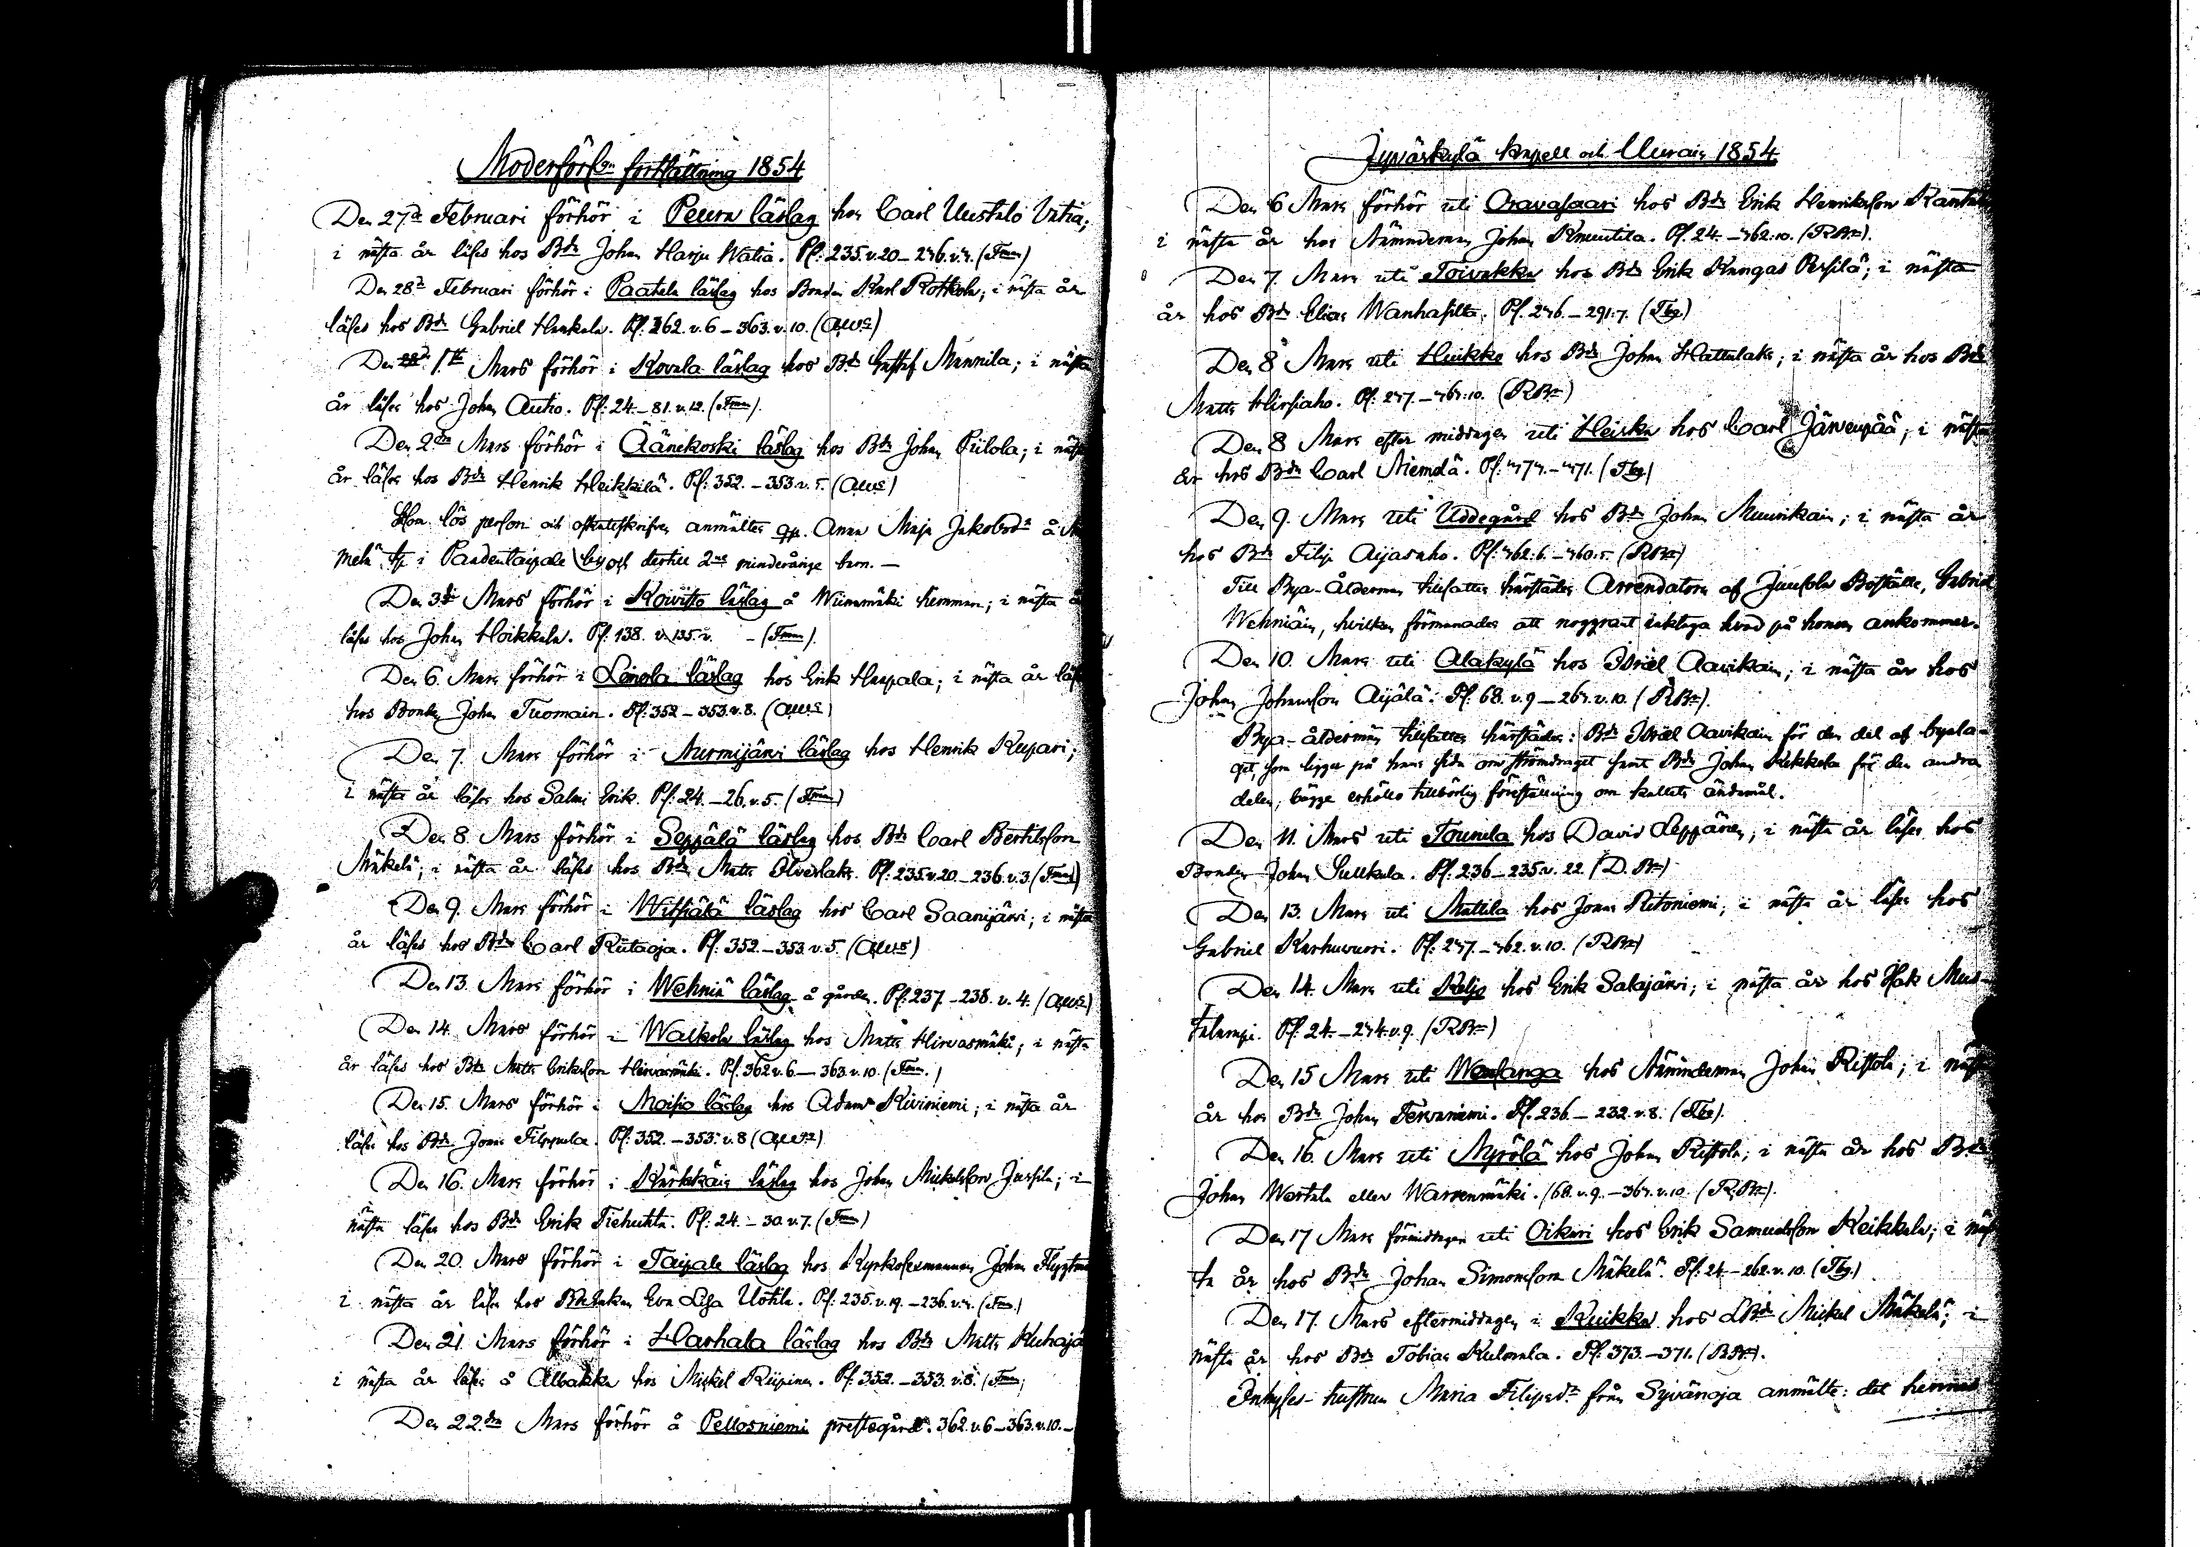 Moderförsgn fortsättning 1854
Den 27de Februari förhör i Peura läslag hos Carl Uustalo Vatia;
i nästa år läses hos Bdn Johan Harju Watia. Ps. 235.v.20–246.v.4. (Fmn)
Den 28de Februari förhör i Paatela läslag hos Bonden Karl Rotkola; i nästa år
läses hos Bdn Gabriel Hankala. Ps. 262.v.6–363.v.10. (AWS)
Den 1ste Mars förhör i Kovala läslag hos Bdn Gustaf Mannila; i nästa
år läses hos Johan Autio. Ps. 24.–81.v.12. (Fmn).
Den 2dra Mars förhör i Äänekoski läslag hos Bdn Johan Piilola; i nästa
år läses hos Bdn Henrik Heikkilä. Ps. 352.–353.v.5. (AWS)
Som lös person och anmältes Anna Maja Jakobsdr å
i Paadentaipale by och dertill 2ne minderårige barn.–
Den 3dje Mars förhör i Koivisto läslag å Wiinamäki hemman; i nästa år
läses hos Johan Hoikkala. Ps. 138. v. 135.v. – (Fmn).
Den 6. Mars förhör i Liinola läslag hos Erik Haapala; i nästa år läses
hos Bonden Johan Tuomain. Ps. 352–353.v.8. (AWS)
Den 7. Mars förhör i Nurmijärvi läslag hos Henrik Kupari;
i nästa år läses hos Salmi Erik. Ps. 24.–26.v.5. (Fmn)
Den 8. Mars förhör i Seppälä läslag hos Bdn Carl Bertilsson
Mäkelä; i nästa år läses hos Bdn Matts Ps. 235.v.20–236.v.3 (Fmn)
Den 9. Mars förhör i läslag hos Carl Saanijärvi; i nästa
år läses hos Bdn Carl Rutaoja. Ps. 352.–353.v.5. (AWS)
Den 13. Mars förhör i Wehniä läslag å gården. Ps. 237.–238.v.4. (AWS)
Den 14. Mars förhör i Walkola läslag hos Matts Hirvasmäki; i nästa
år läses hos Bdn Matts Eriksson Hirvasmäki. Ps. 362.v.6–363.v.10. (Fmn.)
Den 15. Mars förhör i Moisio läslag hos Adam Kiviniemi; i nästa år
läses hos Bdn Jonas Filppula. Ps. 352.–353.v.8 (AWS)
Den 16. Mars förhör i Kärkkäis läslag hos Johan Mickelsson Jussila; i
nästa läses hos Bdn Erik Tiehuhta. Ps. 24.–30.v.7. (Fmn)
Den 20. Mars förhör i Taipale läslag hos Kyrkosexmannen Johan
i nästa år läses hos Eva Lisa Uotila. Ps. 235.v.19.–236.v.4. (Fmn.)
Den 21. Mars förhör i Harhala läslag hos Bdn Matts Kuhajä
i nästa år läses å Albakka hos Mickel Riipinen. Ps. 352.–353.v.8. (Fmn)
Den 22dra Mars förhör å Pellosniemi prestegård. 362.v.6–363.v.10.–
Jyväskylä kapell och Uurais 1854
Den 6 Mars förhör uti Oravasaari hos Bdn Erik Henriksson
i nästa år hos Nämndeman Johan Knuutila. Ps. 24.–462.10. (RBn).
Den 7. Mars uti Toivakka hos Bdn Erik Kangas Persilä; i nästa
år hos Bdn Elias Wanhasilta. Ps. 246.–291.7. (Tbg)
Den 8 Mars uti Huikko hos Bdn Johan Hallulaks; i nästa år hos Bdn
Matts Hirsiaho. Ps. 247.–464.10. (RBn)
Den 8 Mars efter middagen uti Heiska hos Carl Järvenpää; i nästa
år hos Bdn Carl Niemelä. Ps. 474.–471. (Tbg)
Den 9. Mars uti Uddegård hos Bdn Johan Muurikain; i nästa år
hos Bdn Filip Aijasaho. Ps. 462.6.–460.5. (RBn)
Till Bya-Ålderman tillsattes härstädes Arrendatorn af Juusola Boställe, Gabriel
Wehniäin, hvilken förmanades att noggrant iakttaga hvad på honom ankommer.
Den 10. Mars uti Alakylä hos Israel Aavikain; i nästa år hos
Johan Johansson Aijälä. Ps. 68.v.9–264.v.10. (RBn).
Bya-åldermän tillsattes härstädes: Bdn Israel Aavikain för den del af byala-
get, som ligger på hans sida om strömdraget samt Bdn Johan Kekkola för den andra
delen, bägge erhöllo tillbörlig föreställning om kallets ändamål.
Den 11. Mars uti Tourula hos David Leppänen; i nästa år läses hos
Bonden Johan Sulkula. Ps. 236–235.v.22. (D.Bn)
Den 13. Mars uti Mattila hos Jonas Ritoniemi; i nästa år läses hos
Gabriel Karhuvuori. Ps. 247.–462.v.10. (RBn)
Den 14. Mars uti Keljo hos Erik Salajärvi; i nästa år hos Isak Mus-
talampi. Ps. 24.–274.v.9. (RBn)
Den 15 Mars uti Wesanga hos Nämndeman Johan Ristola; i nästa
år hos Bdn Johan Tervaniemi. Ps. 236.–232.v.8. (Tbg).
Den 16. Mars uti Nyrölä hos Johan Ristola; i nästa år hos Bdn
Johan Wertala eller Warvenmäki. (68.v.9.–364.v.10. (R.Bn).
Den 17 Mars förmiddagen uti Oikari hos Erik Samuelsson Keikkala; i näs
ta år hos Bdn Johan Simonsson Mäkelä. Ps. 24–262.v.10. (Tbg.)
Den 17. Mars eftermiddagen i Kuikka hos LBdn Mickel Mäkelä; i
nästa år hos Bdn Tobias Kulomala. Ps. 373.–371. (RBn).
Inhyses-hustrun Maria Filipsdr från Syvänoja anmälte: det hennes